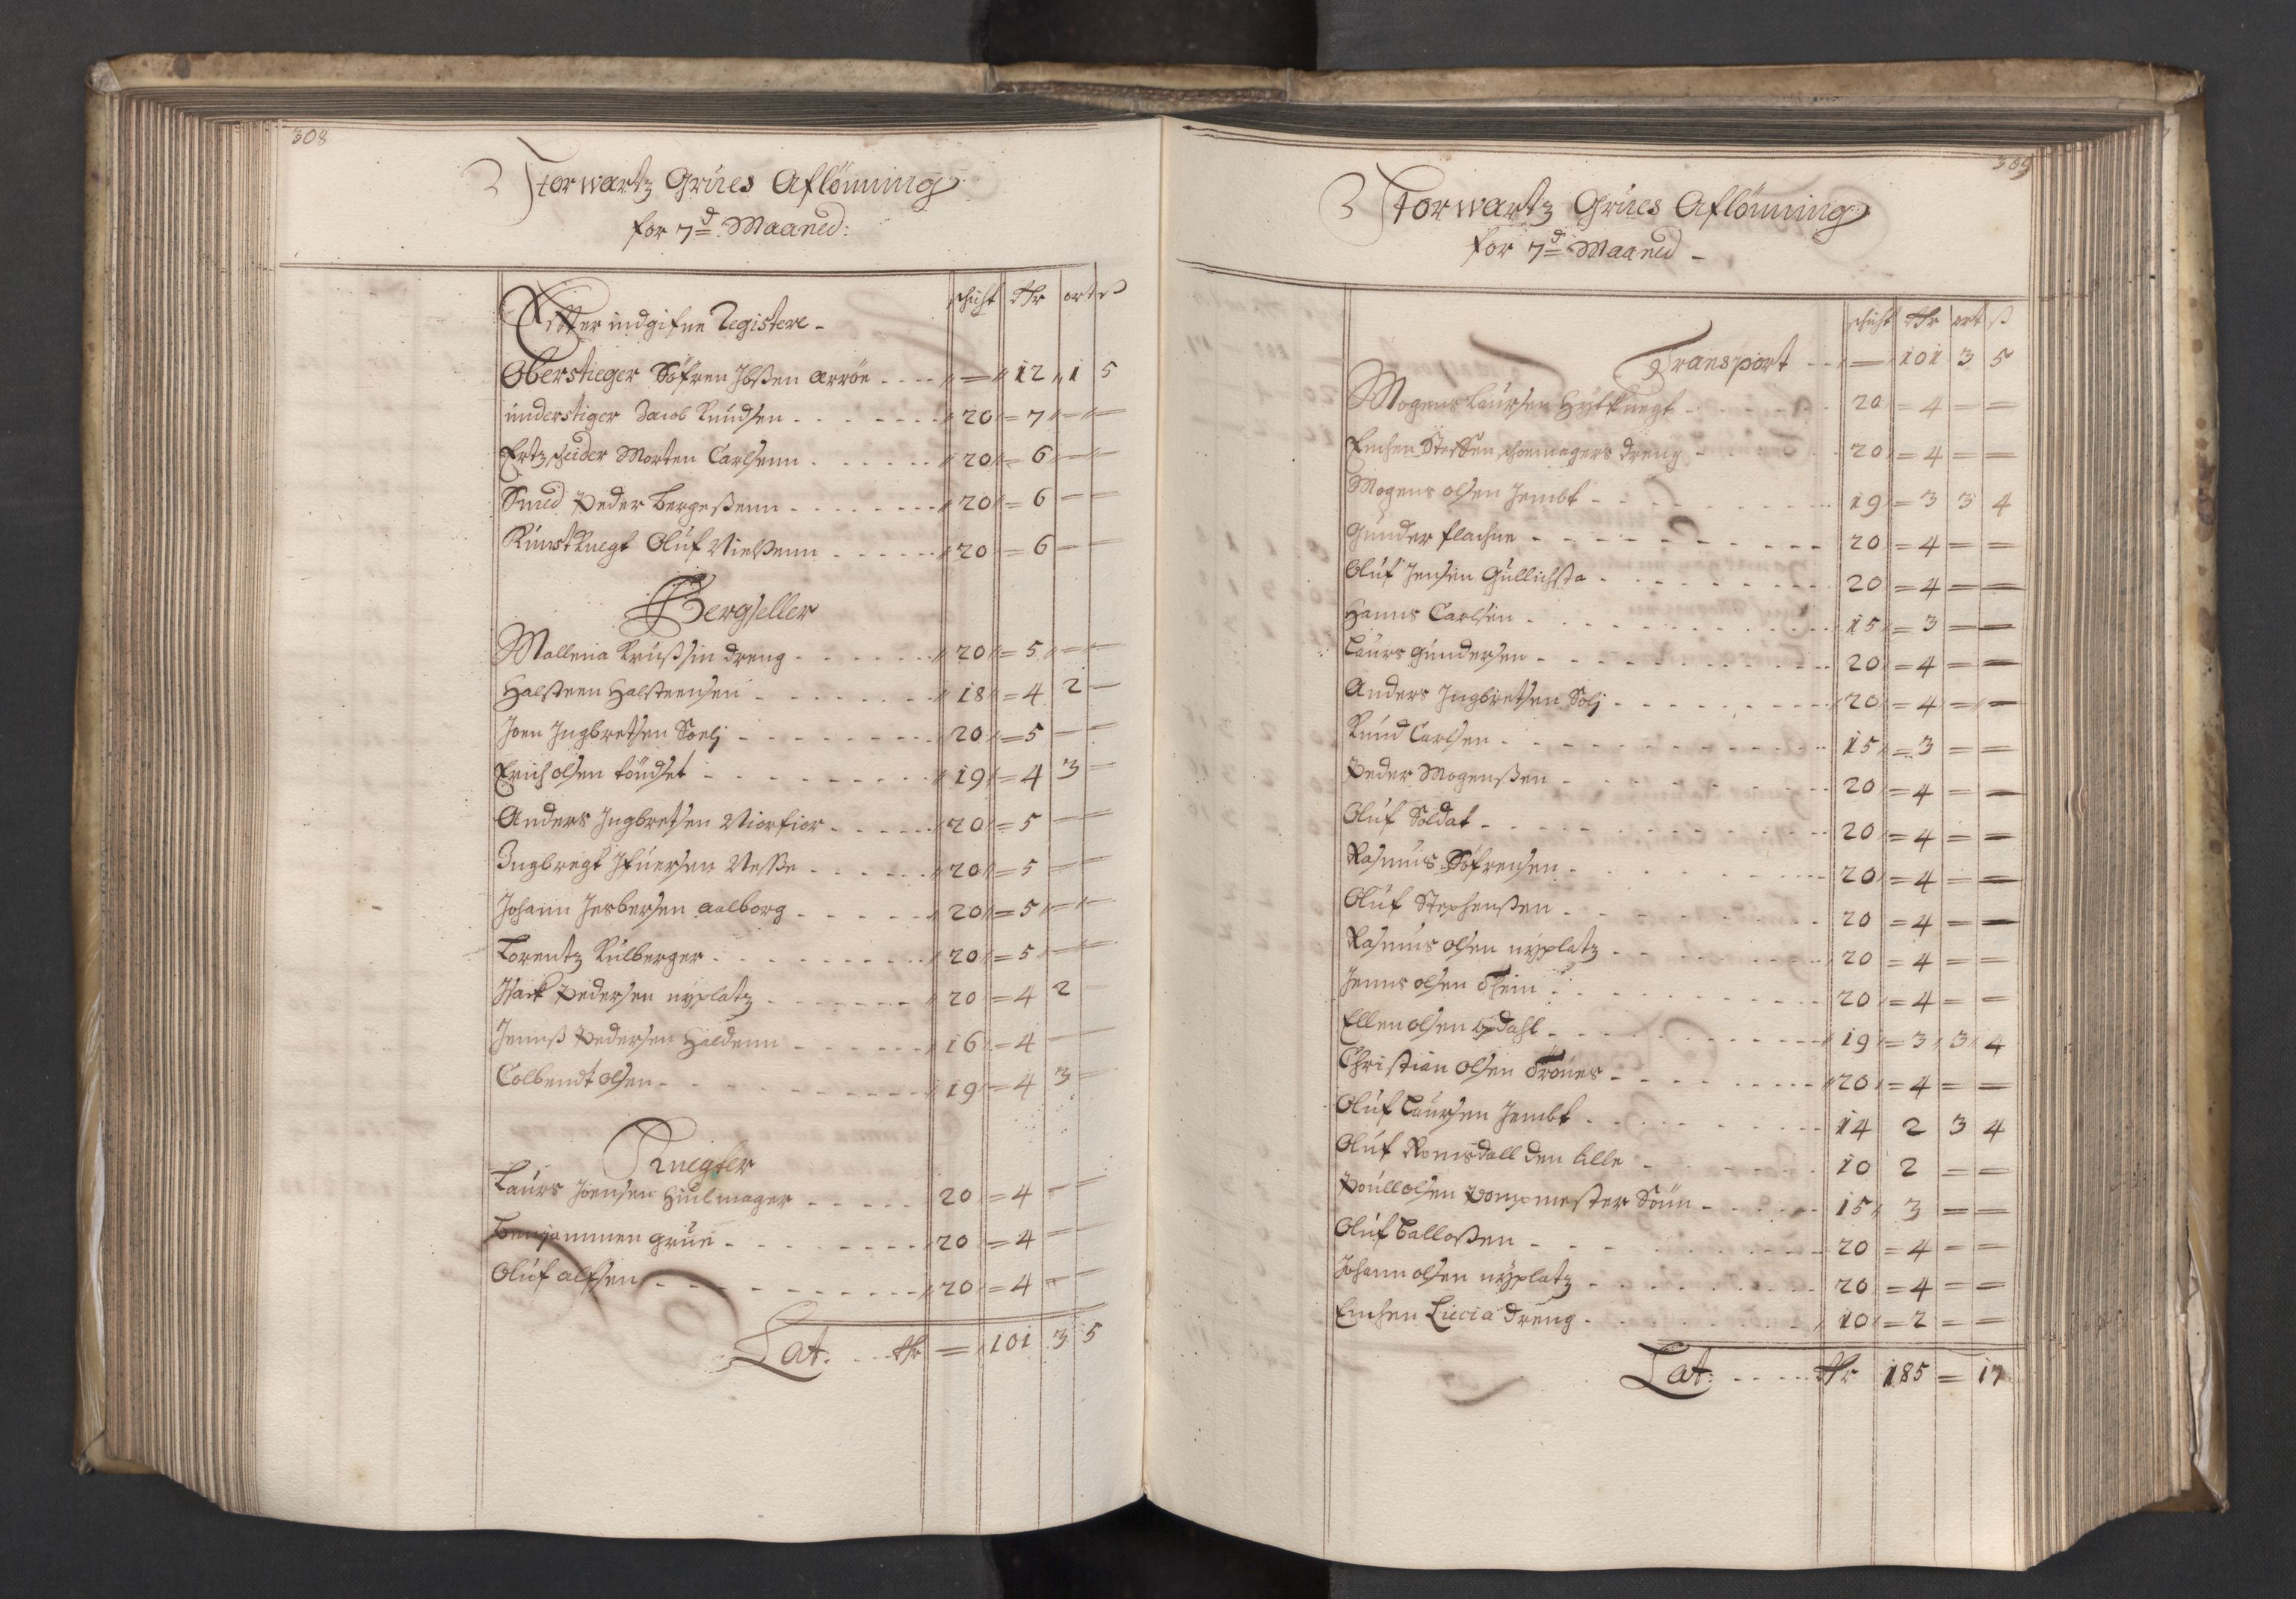 308
Storwartz Grües Aflönning
for 7d Maaned:
schicht Rdr ort ß
Effter indgifne Registere -
Oberstieger Söfren Ibßen Arröe - - - - — 12 1 5
understiger Jacob Knudsen - - - - 20 = 7 — —
Ertzscheider Morten Carlsenn - - - - 20 = 6 — —
Smed Peder Bergeßenn - - - - 20 = 6 — —
Kunstknegt Oluf Nielßenn - - - - 20 = 6 — —
Bergseller
Mallena Krußsin dreng - - - - 20 = 5 — —
Halsteen Halsteensen - - - - 18 = 4 2 —
Joen Ingbretsen Soelj - - - - 20 = 5 — —
Erich olsen töndset - - - - 19 = 4 3 —
Anders Ingbretsen - - - - 20 = 5 — —
Ingbregt Ifuersen Neße - - - - 20 = 5 — —
Johann Jesbersen aalborg - - - - 20 = 5 — —
Lorentz Külberger - - - - 20 = 5 — —
Isack Pedersen nyplatz - - - - 20 = 4 2 —
Jennß Pedersen Haldenn - - - - 16 = 4 — —
Colbendt olsen - - - - 19 = 4 3 —
Knegter
Laurs Joensen Hiulmager - - - - 20 = 4 — —
Benjammen grüe - - - - 20 = 4 — —
Oluf alfsen - - - - 20 = 4 — —
Lat. - - - Rdr = 101 3 5
309
Storwartz Grües Aflönning
for 7d Maaned -
schicht Rdr ort ß
Transport - - — 101 3 5
Mogens Laursen Hytknegt - - - - 20 = 4 — —
Enchen Steffen schoemagers dreng - - - - 20 = 4 — —
Mogens olsen Jembt - - - - 19 = 3 3 4
Gunder flachne - - - - 20 = 4 — —
Oluf Jensen Gullichsta - - - - 20 = 4 — —
Hanns Carlsen - - - - 15 = 3 — —
Laurs gundersen - - - - 20 = 4 — —
Anders Ingbretsen Solj - - - - 20 = 4 — —
Knud Carlsen - - - - 15 = 3 — —
Peder Mogenßen - - - - 20 = 4 — —
Oluf Soldat - - - - 20 = 4 — —
Rasmus Söfrensen - - - - 20 = 4 — —
Oluf Stephenßen - - - - 20 = 4 — —
Rasmus olsen nyplatz - - - - 20 = 4 — —
Jenns olsen Thein - - - - 20 = 4 — —
Ellen olsen opdahl - - - - 19 = 3 3 4
Christian olsen Trönes - - - - 20 = 4 — —
Oluf Laursen Jembt - - - - 14 2 3 4
Oluf Romsdall den lille - - - - 10 2 — —
Poull olsen Pompmester Sönn - - - - 15 3 — —
Oluf Talloßen - - - - 20 = 4 — —
Johann olsen nyplatz - - - - 20 = 4 — —
Enchen Lucia dreng - - - - 10 = 2 — —
Lat: - - - - Rdr 185 = 17